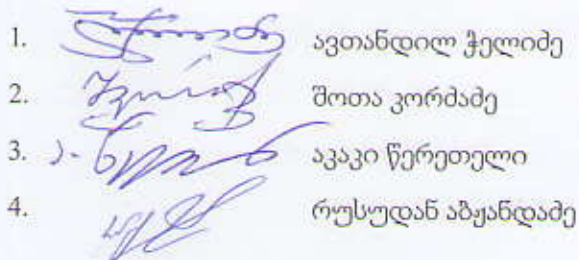 1. ავთანდილ ჭელიძე
2. შოთა კორძაძე
3. აკაკი წერეთელი
4. რუსუდან აბჟანდაძე